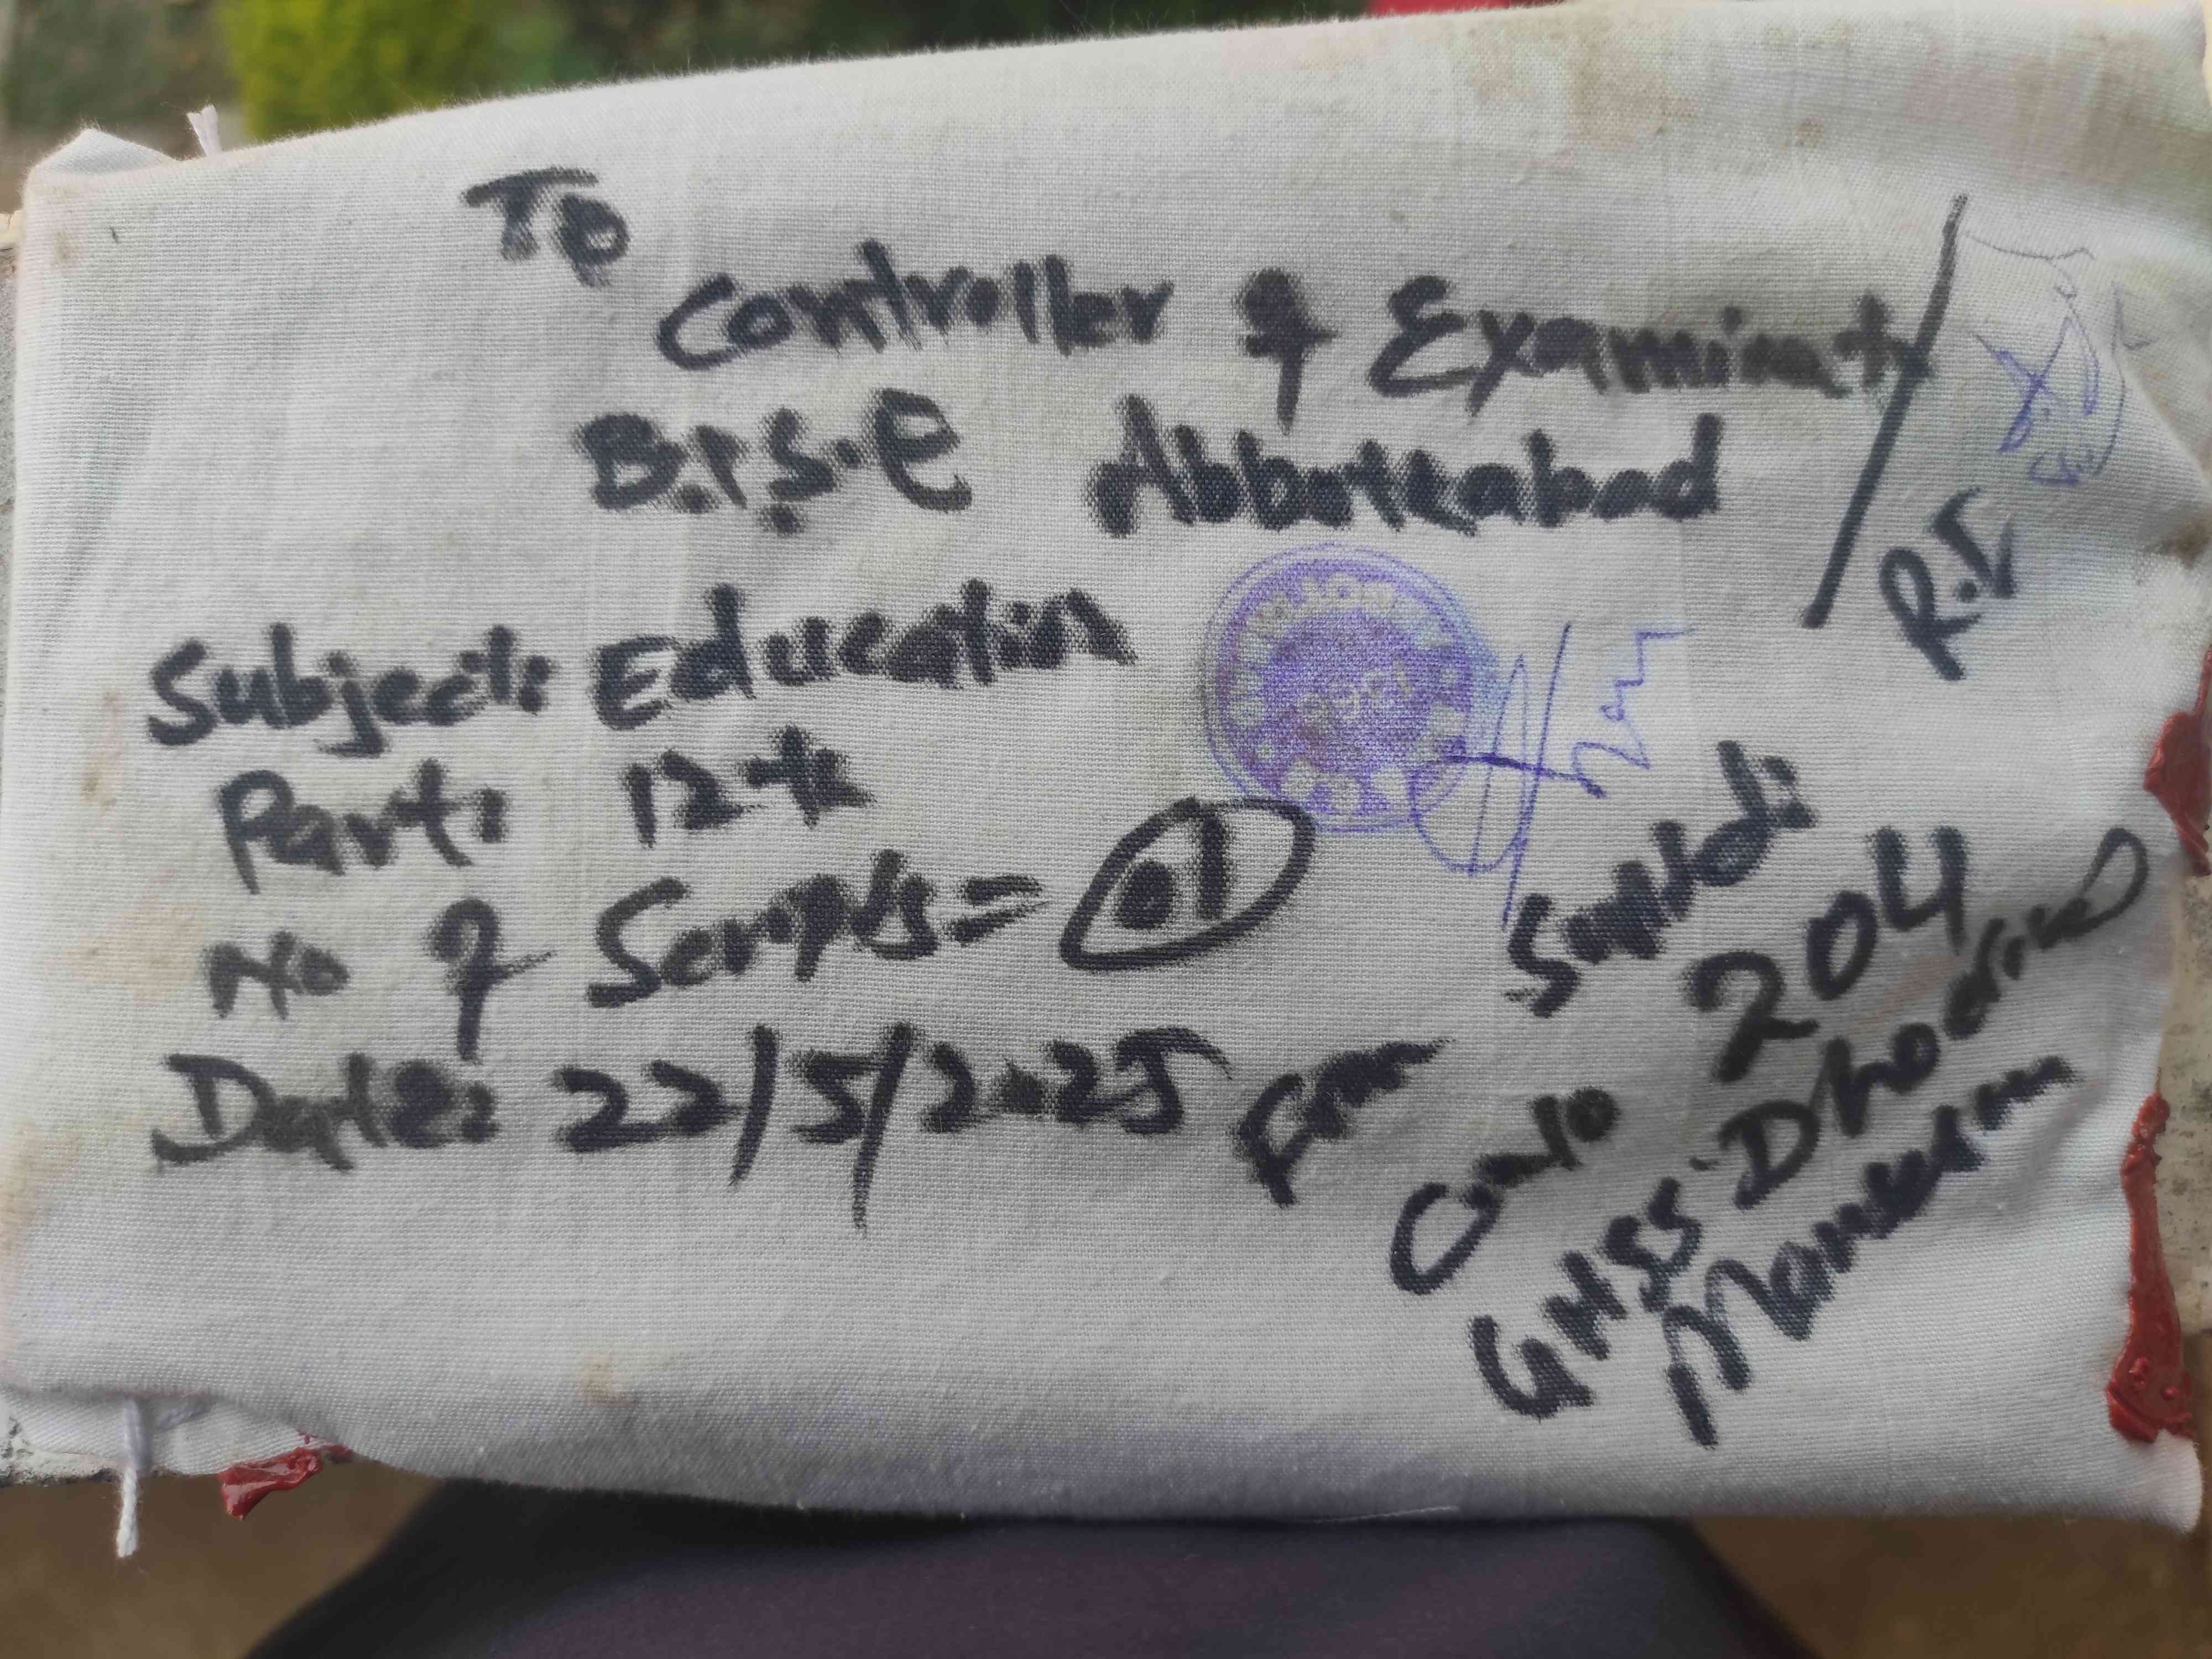 To
Controller of Examinat
B.I.S.E Abbottabad
R.I
Subject: Education
Part: 12th
No of Scripts = 01
Date: 22/5/2025
From
Supdt:
204
GHSS Dhodial
Mansehra